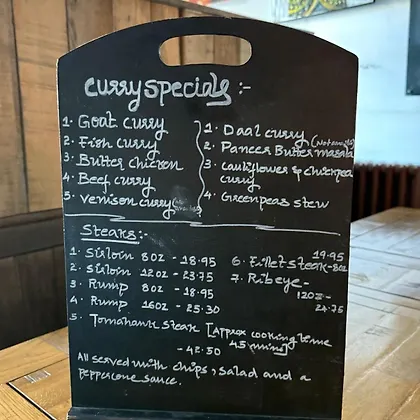 curry specials :-
1. Goat curry
2. Fish curry
3. Butter chicken
4. Beef curry
5. venison curry
1. Daal curry
2. Paneer Butter masala
3. cauliflower & chickpea
curry
4. Greenpeas stew
Steaks:-
1. Sirloin 8oz - 18.95
2. Sirloin 12oz - 23.75
3. Rump 8oz - 18.95
4. Rump 16oz - 25.30
5. Tomahawk steak [Approx cooking time
45 mins]
- 42.50
19.95
6. Fillet steak - 8oz
7. Ribeye -
12oz -
24.75
All served with chips, salad and a
peppercone sauce.